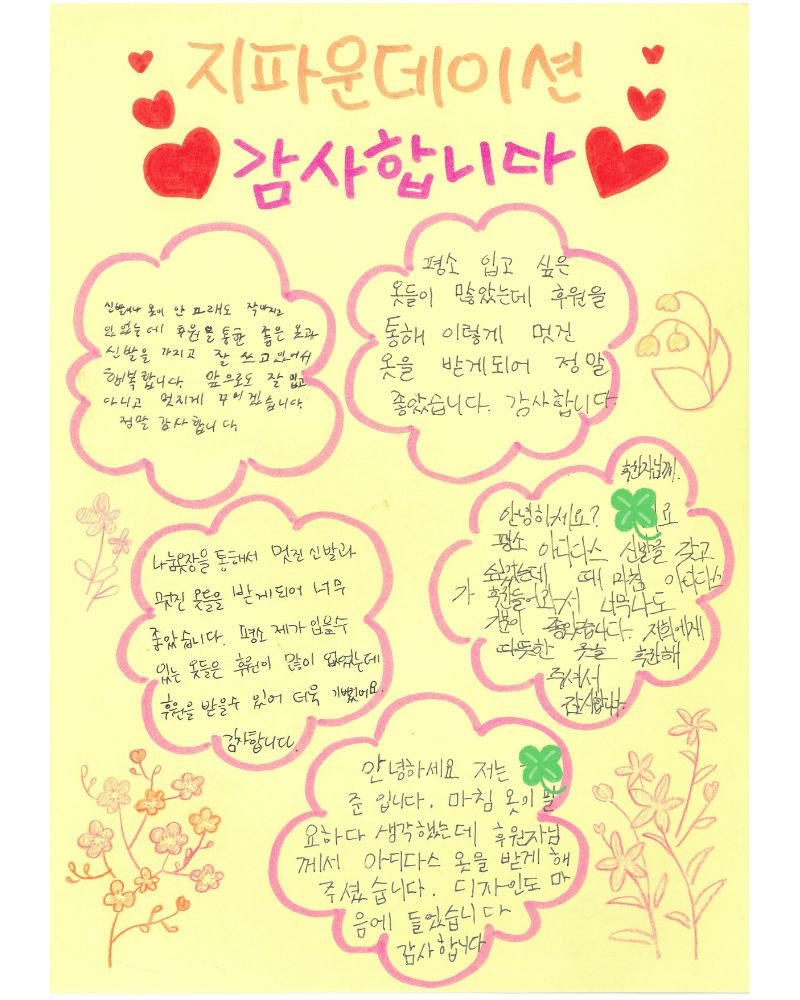 지파운데이션
감사합니다
신발이나 옷이 안 그래도 작아지고
없었는데 후원을 통한 좋은 옷과
신발을 가지고 잘 쓰고 있어서
행복합니다. 앞으로도 잘 입고
다니고 멋지게 꾸미겠습니다.
정말 감사합니다.
평소 입고 싶은
옷들이 많았는데 후원을
통해 이렇게 멋진
옷을 받게되어 정말
좋았습니다. 감사합니다.
나눔옷장을 통해서 멋진 신발과
멋진 옷들을 받게되어 너무
좋았습니다. 평소 제가 입을수
있는 옷들은 후원이 많이 없었는데
후원을 받을수 있어 더욱 기뻤어요.
감사합니다.
후원자님께.
안녕하세요? 요
평소 아디다스 신발을 갖고
싶었는데 때마침 아디다스
가 후원들어와서 너무나도
기분이 좋았습니다. 저희에게
따뜻한 옷을 후원해
주셔서
감사합니다.
안녕하세요 저는
준 입니다. 마침 옷이 필
요하다 생각했는데 후원자님
께서 아디다스 옷을 받게 해
주셨습니다. 디자인도 마
음에 들었습니다
감사합니다